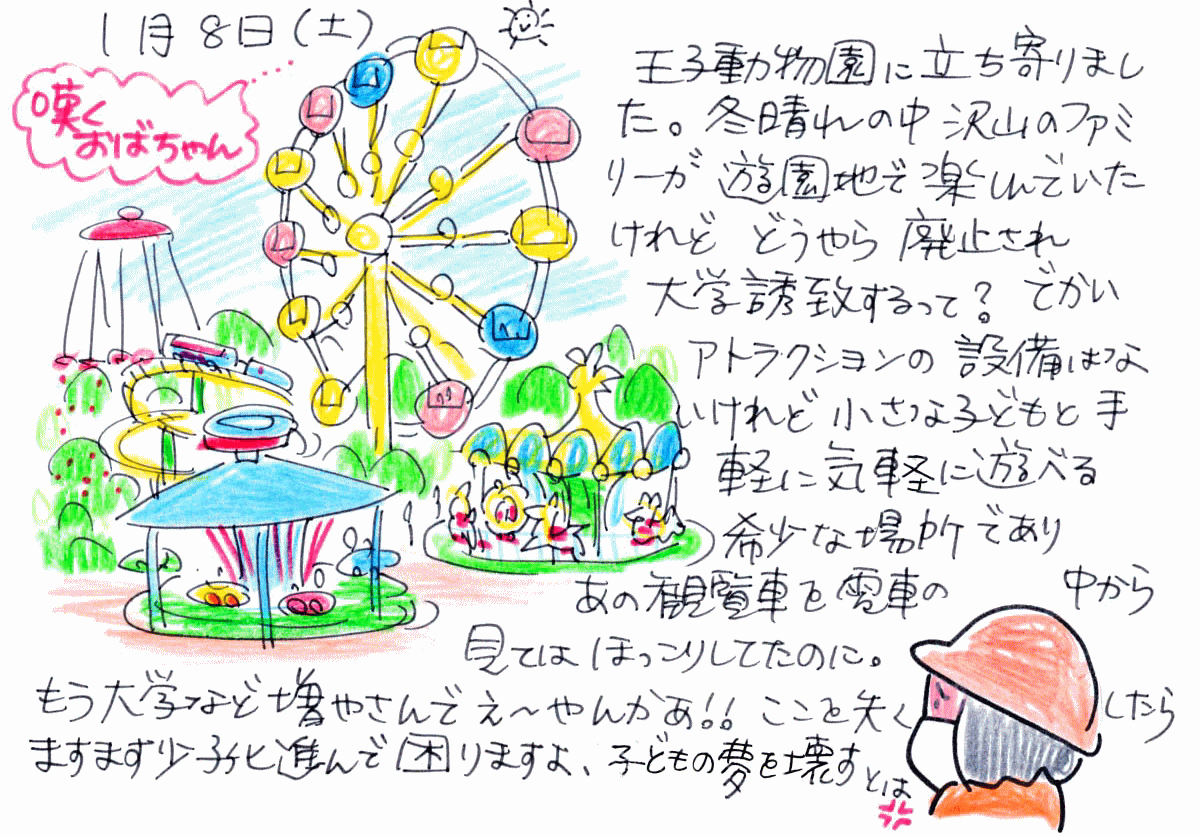 1月8日(土)
嘆く
おばちゃん
王子動物園に立ち寄りまし
た。冬晴れの中沢山のファミ
リーが遊園地で楽しんでいた
けれど どうやら廃止され
大学誘致するって?でかい
アトラクションの設備はな
いけれど小さな子どもと手
軽に気軽に遊べる
希少な場所であり
あの観覧車を電車の中から
見てはほっこりしてたのに。
もう大学など増やさんでえ〜やんかあ!!ここを失くしたら
ますます少子化進んで困りますよ、子どもの夢を壊すとは